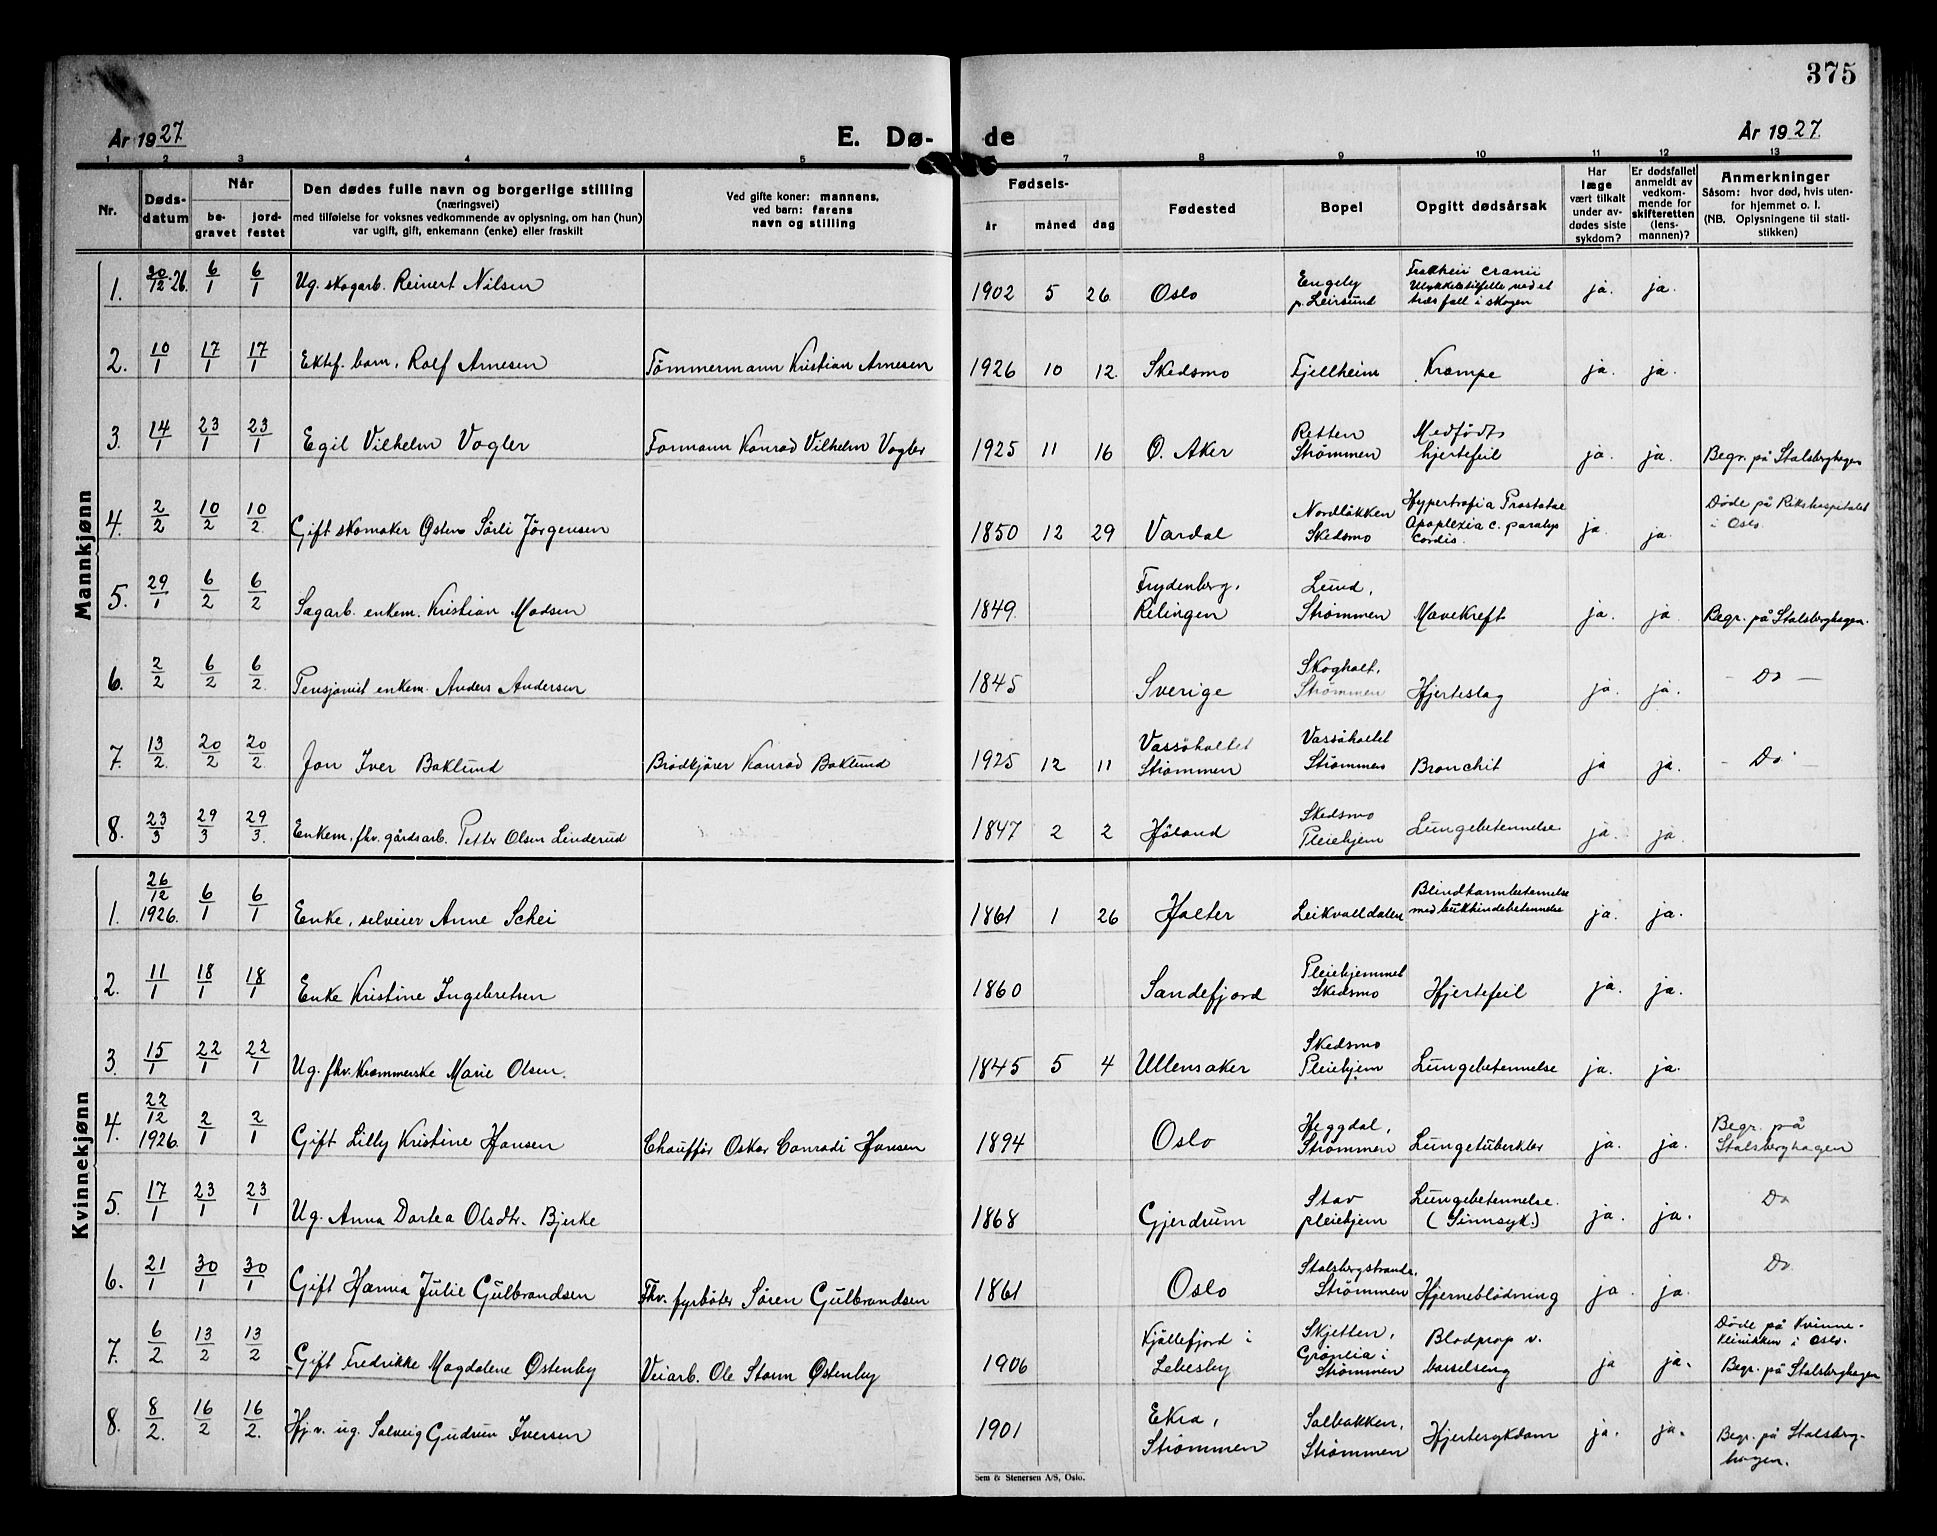 375
År 1927
E. Dø-
de
År 1927.
1 2 3 4 5 7 8 9 10 11 12 13
Nr.
Døds-
datum
Når
be-
gravet
jord-
festet
Den dødes fulle navn og borgerlige stilling
(næringsvei)
med tilføielse for voksnes vedkommende av oplysning, om han (hun)
var ugift, gift, enkemann (enke) eller fraskilt
Ved gifte koner: mannens,
ved barn: farens
navn og stilling
Fødsels-
år måned dag
Fødested
Bopel
Opgitt dødsårsak
Har
læge
vært tilkalt
under av-
dødes siste
sykdom?
Er dødsfallet
anmeldt av
vedkom-
mende for
skifteretten
(lens-
mannen)?
Anmerkninger
Såsom: hvor død, hvis uten-
for hjemmet o. l.
(NB. Oplysningene til stati-
stikken)
Mannkjønn
1. 30/12-26. 6/1 6/1 Ug. skogarb. Reinert Nilsen 1902 5 26 Oslo Engely
p. Leirsund cranii
Ulykkestilfelle ved et
træs fall i skogen ja. ja.
2. 10/1 17/1 17/1 Ektef. barn, Rolf Arnesen Tømmermann Kristian Arnesen 1926 10 12. Skedsmo Fjellheim Krampe ja. ja.
3. 14/1 23/1 23/1 Egil Vilhelm Vogler Formann Konrad Vilhelm Vogler 1925 11 16 Ø. Aker Retten
Strømmen Medfødt
hjertefeil ja. ja. Begr. på Stalsberghagen
4. 2/2 10/2 10/2 Gift skomaker Østen Sørli Jørgensen 1850 12 29 Vardal Nordløkken
Skedsmo Hypertrofia Prostatae
Apoplexia c. paralys
Cordis. ja. ja. Døde på Rikshospitalet
i Oslo.
5. 29/1 6/2 6/2 Sagarb. enkem. Kristian Madsen 1849. Frydenberg,
Relingen Lund,
Strømmen Mavekreft ja. ja. Begr. på Stalsberghagen.
6. 2/2 6/2 6/2. Pensjonist enkem. Anders Andersen 1845 Sverige Skogholt,
Strømmen Hjerteslag ja. ja. - Do -
7. 13/2. 20/2 20/2 Jon Iver Baklund Brødkjører Konrad Baklund 1925 12 11 Vassøholtet
Strømmen Vassøholtet
Strømmen Bronchit ja ja. - Do -
8. 23/3 29/3 29/3. Enkem. fhv. gårdsarb. Petter Olsen Linderud 1847 2 2 Høland Skedsmo
Pleiehjem Lungebetennelse ja. ja.
Kvinnekjønn
1. 26/12
1926. 6/1 6/1 Enke, selveier Anne Schei 1861 1 26 Holter Leikvolldalen Blindtarmbetennelse
med bukhindebetennelse ja. ja.
2. 11/1 18/1 18/1 Enke Kristine Ingebretsen 1860 Sandefjord Pleiehjemmet
Skedsmo Hjertefeil ja. ja.
3. 15/1 22/1 22/1 Ug. fhv. Krammerske Marie Olsen. 1845 5 4 Ullensaker Skedsmo
Pleiehjem Lungebetennelse ja. ja.
4. 22/12
1926. 2/1 2/1 Gift Lilly Kristine Hansen Chauffør Oskar Conradi Hansen 1894 Oslo Heggdal,
Strømmen Lungetuberkler ja. ja. Begr. på
Stalsberghagen
5. 17/1 23/1 23/1 Ug. Anna Dortea Olsdtr. Bjerke 1868 Gjerdrum Stav
pleiehjem Lungebetennelse.
(Sinnsyk.) ja. ja. Do
6. 21/1 30/1 30/1 Gift Hanna Julie Gulbrandsen Fhv. fyrbøter Søren Gulbrandsen 1861 Oslo Stalsbergstrande,
Strømmen Hjerneblødning ja. ja. Do.
7. 6/2. 13/2 13/2 Gift Fredrikke Magdalene Østenby Veiarb. Ole Storm Østenby 1906 Kjøllefjord i
Lebesby Skjetten,
Grønlia i
Strømmen Blodprop v.
barselseng ja ja. Døde på Kvinne-
klinikken i Oslo.
Begr. på Stalsberghagen
8. 8/2. 16/2 16/2. Hj.v. ug. Solveig Gudrun Iversen 1901 Ekra,
Strømmen Solbakken,
Strømmen Hjertesykdom ja. ja. Begr. på Stalsberg-
hagen.
Sem & Stenersen A/S, Oslo.